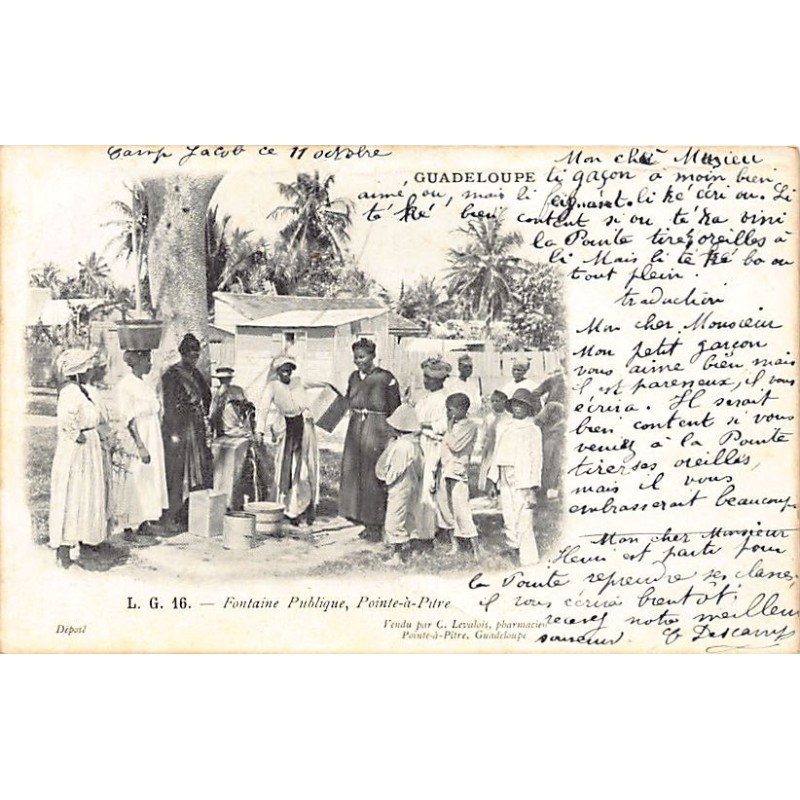 Camp Jacob ce 11 octobre
GUADELOUPE
Mon chè Musieu
ti gaçon à moin bien
aimé ou, mais li feignant. li ké écri ou. Li
té ké bien content si ou té ka vini
la Pointe tirer oreilles à
li Mais li té ké bo ou
tout plein.
traduction
Mon cher Monsieur
Mon petit garçon
vous aime bien mais
il est paresseux, il vous
écrira. Il serait
bien content si vous
veniez à la Pointe
tirer ses oreilles,
mais il vous
embrasserait beaucoup
Mon cher Monsieur
Henri est parti pour
la Pointe reprendre ses classes
il vous écrira bientôt.
recevez notre meilleur
souvenir. Descamps
L. G. 16. — Fontaine Publique, Pointe-à-Pitre
Déposé
Vendu par C. Levalois, pharmacien
Pointe-à-Pitre, Guadeloupe